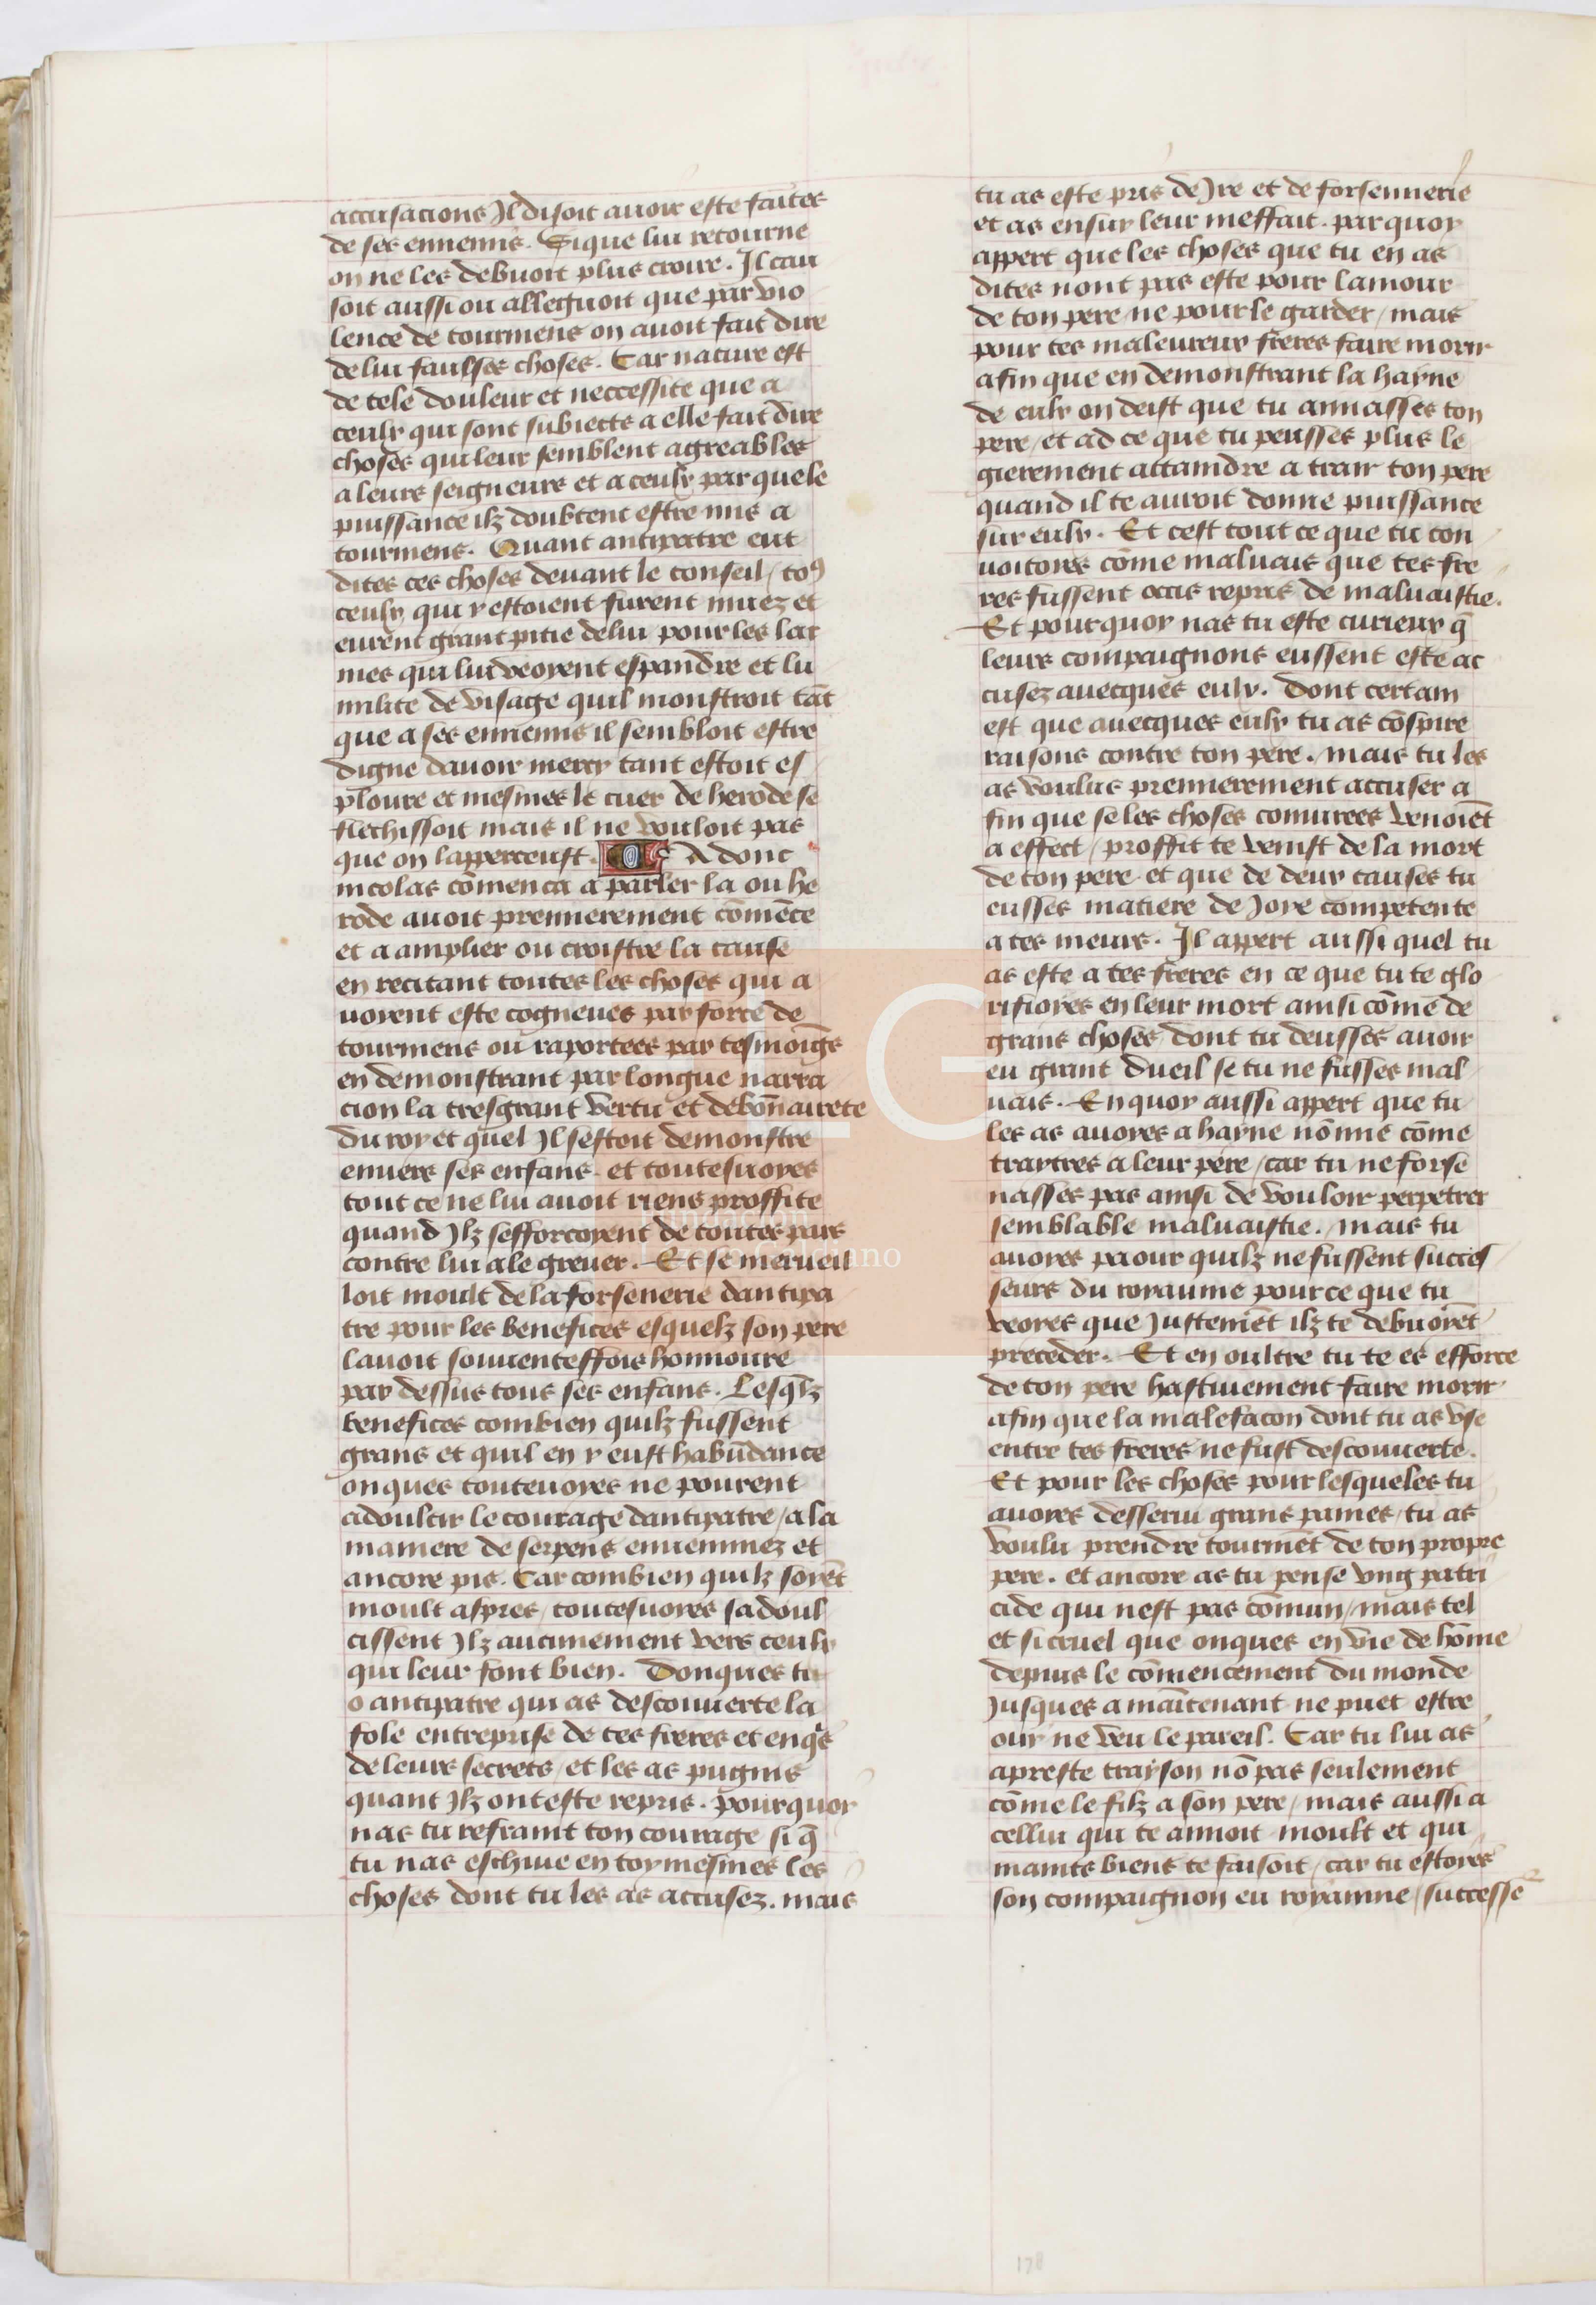 accusacions Il disoit auoir este faites
de ses ennemis. Si que lui retourne
on ne les debuoit plus croire. Il cau
soit aussi ou alleguoit que par vio
lence de tourmens on auoit fait dire
de lui faulses choses. Car nature est
de tele douleur et neccessite que a
ceulx qui sont subiects a elle fait dire
choses qui leur semblent agreables
a leurs seigneurs et a ceulx par quele
puissance ilz doubtent estre mis a
tourmens. Quant antipatre eut
dites ces choses deuant le conseil / toꝯ
ceulx qui y estoient furent muez et
eurent grant pitie de lui pour les lar
mes qui lui veoyent espandre et lu
milite de visage quil monstroit tāt
que a ses ennemis il sembloit estre
digne dauoir mercy tant estoit es
ploure et mesmes le cuer de herode se
flechissoit mais il ne vouloit pas
que on lapperceust. Adonc
nicolas cōmenca a parler la ou he
rode auoit premierement cōmēce
et a amplier ou croistre la cause
en recitant toutes les choses qui a
uoyent este cogneues par force de
tourmens ou raportees par tesmoings
en demonstrant par longue narra
cion la tresgrant vertu et debōnairete
du roy et quel Il sestoit demonstre
enuers ses enfans. et toutesuoyes
tout ce ne lui auoit riens proffite
quand Ilz sefforcoyent de toutes pars
contre lui a le greuer. Et se merueil
loit moult de la forsenerie dantipa
tre pour les benefices esquelz son pere
lauoit souuenteffois honnoure
par dessus tous ses enfans. Lesq̄lz
benefices combien quilz fussent
grans et quil en y eust habūdance
onques touteuoyes ne pourent
adoulcir le courage dantipatre / a la
maniere de serpens enuenimez et
ancore pis. Car combien quilz soyēt
moult aspres / toutesuoyes sadoul
cissent Ilz aucunement vers ceulx
qui leur font bien. Donques tu
o antipatre qui as descouuerte la
fole entreprise de tes freres et enq̄s
de leurs secrets / et les as pugnis
quant Ilz ont este repris. pourquoy
nas tu refraint ton courage si q̄
tu nas eschiue en toy mesmes les
choses dont tu les as accusez. mais
tu as este pris de Ire et de forsennerie
et as ensuy leur meffait. par quoy
appert que les choses que tu en as
dites nont pas este pour lamour
de ton pere ne pour le garder / mais
pour tes maleureux freres faire morir
afin que en demonstrant la hayne
de eulx on deist que tu amasses ton
pere / et ad ce que tu peusses plus le
gierement attaindre a trair ton pere
quand il te auroit donne puissance
sur eulx. Et cest tout ce que tu con
uoitoies cōme maluais que tes fre
res fussent occis repris de maluaistie.
Et pourquoy nas tu este curieux q̄
leurs compaignons eussent este ac
cusez auecques eulx. Dont certain
est que auecques eulx tu as cōspire
raisons contre ton pere. mais tu les
as voulus premierement accuser a
fin que se les choses coniurees venoiēt
a effect / proffit te venist de la mort
de ton pere et que de deux causes tu
eusses matiere de Joye competente
a tes meurs. Il appert aussi quel tu
as este a tes freres en ce que tu te glo
rifioyes en leur mort ainsi cōme de
grans choses dont tu deusses auoir
eu grant dueil se tu ne fusses mal
uais. En quoy aussi appert que tu
les as auoyes a hayne nō mie cōme
traytres a leur pere / car tu ne forse
nasses pas ainsi de vouloir perpetrer
semblable maluaistie. mais tu
auoyes paour quilz ne fussent succes
seurs du royaume pource que tu
veoyes que Justemēt ilz te debuoyēt
preceder. Et en oultre tu te es efforce
de ton pere hastiuement faire morir
afin que la malefacon dont tu as vse
entre tes freres ne fust descouuerte.
Et pour les choses pour lesqueles tu
auoyes desserui grans paines / tu as
voulu prendre tourmēt de ton propre
pere. et ancore as tu pense vng patri
cide qui nest pas cōmun / mais tel
et si cruel que onques en vie de hōme
depuis le cōmencement du monde
Jusques a maītenant ne puet estre
ouy ne veu le pareil. Car tu lui as
apreste trayson nō pas seulement
cōme le filz a son pere / mais aussi a
cellui qui te amoit moult et qui
maints biens te faisoit / car tu estoyes
son compaignon eu royaume / successe
LG
128